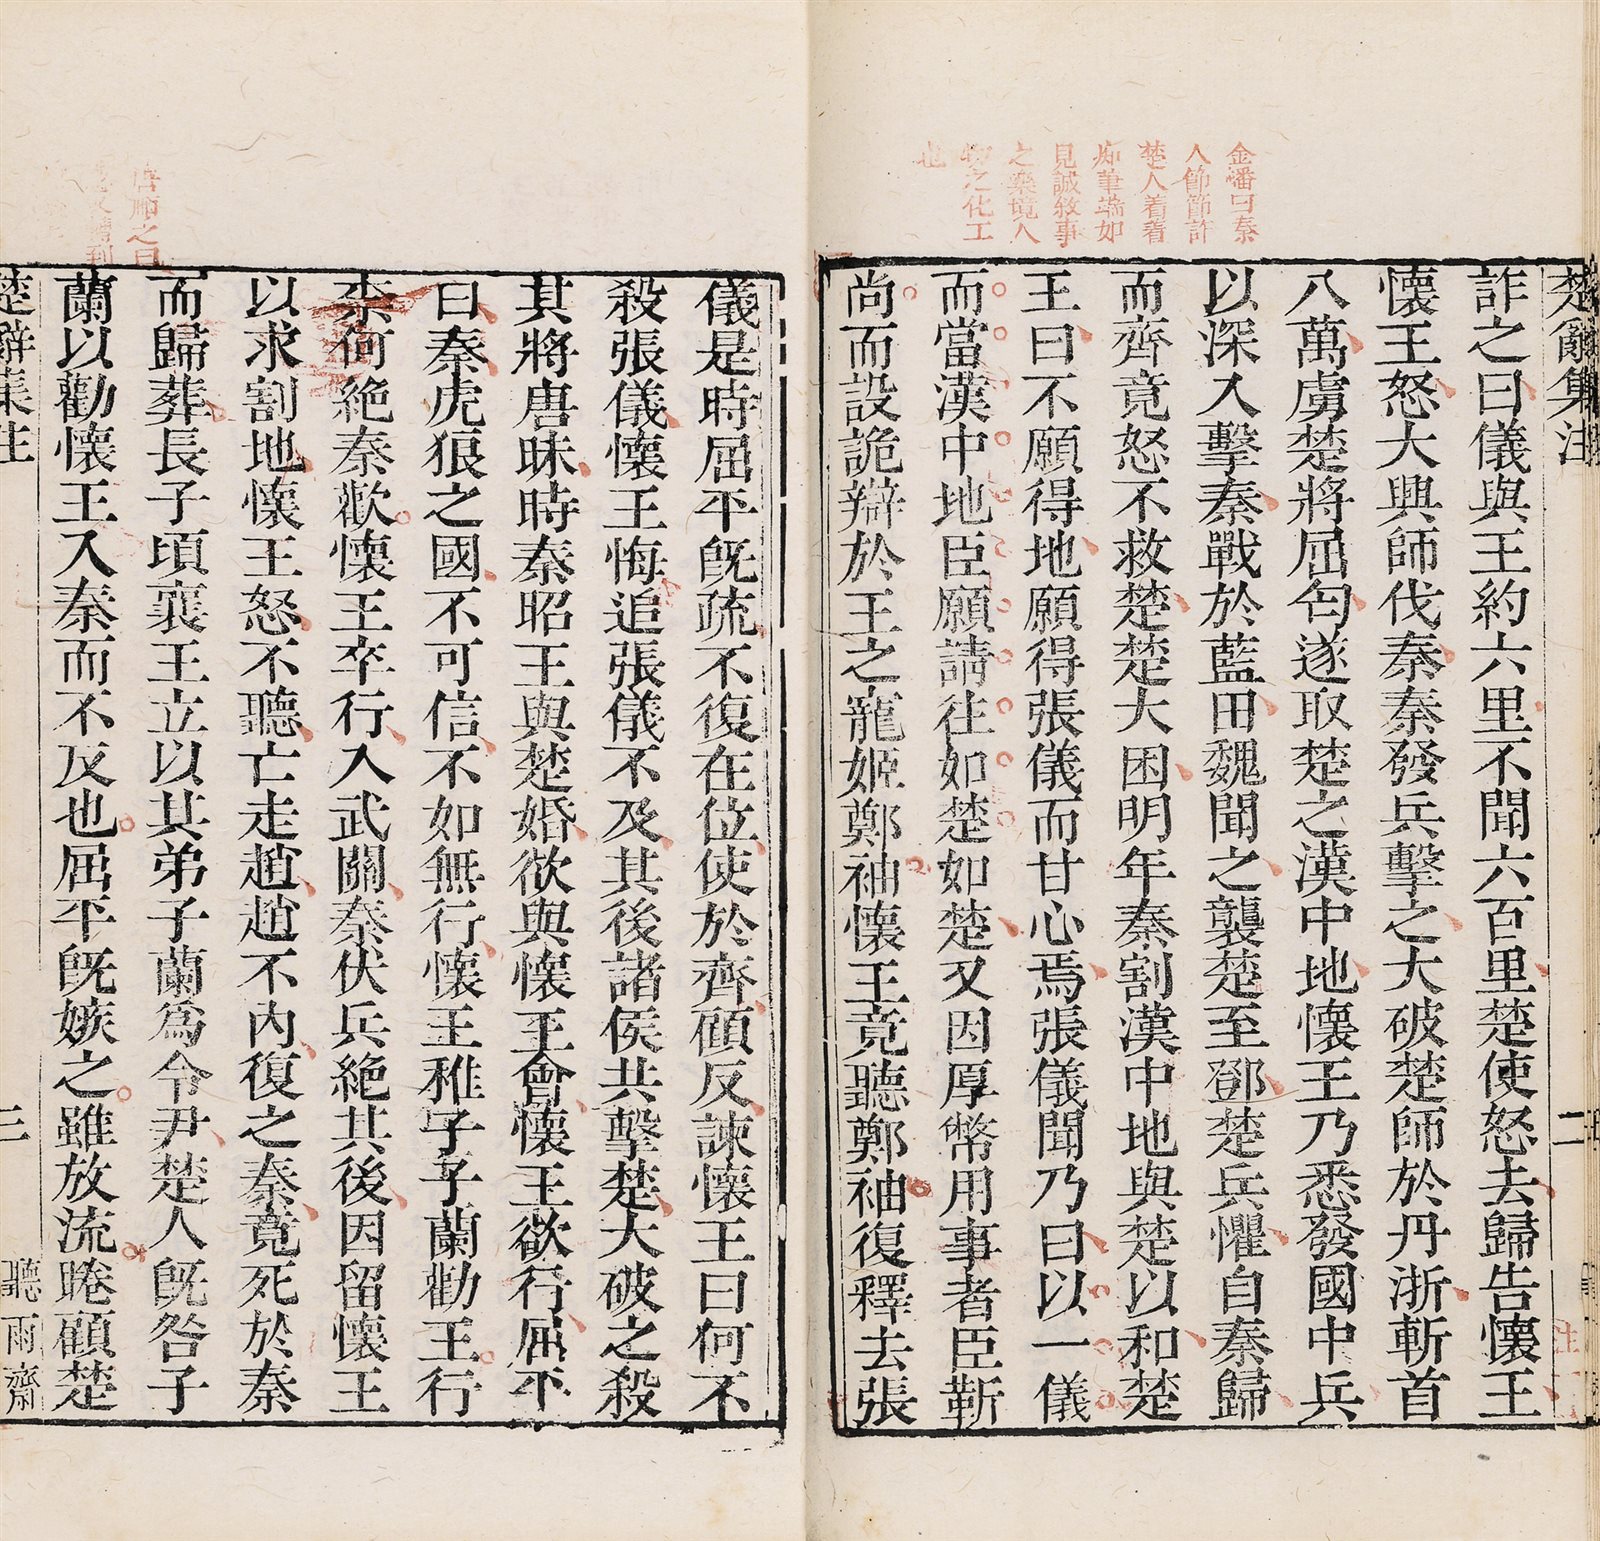 金蟠曰秦
人節節詐
楚人着着
痴筆端如
見誠敘事
之樂境人
物之化工
也
楚辭集注
二
詐之曰儀與王約六里不聞六百里楚使怒去歸告懷王
懷王怒大興師伐秦秦發兵擊之大破楚師於丹浙斬首
八萬虜楚將屈匄遂取楚之漢中地懷王乃悉發國中兵
以深入擊秦戰於藍田魏聞之襲楚至鄧楚兵懼自秦歸
而齊竟怒不救楚楚大困明年秦割漢中地與楚以和楚
王曰不願得地願得張儀而甘心焉張儀聞乃曰以一儀
而當漢中地臣願請往如楚如楚又因厚幣用事者臣靳
尚而設詭辯於王之寵姬鄭袖懷王竟聽鄭袖復釋去張
唐順之曰
儀是時屈平旣疏不復在位使於齊顧反諫懷王曰何不
殺張儀懷王悔追張儀不及其後諸侯共擊楚大破之殺
其將唐昧時秦昭王與楚婚欲與懷王會懷王欲行屈平
曰秦虎狼之國不可信不如無行懷王稚子子蘭勸王行
柰何絶秦歡懷王卒行入武關秦伏兵絶其後因留懷王
以求割地懷王怒不聽亡走趙趙不內復之秦竟死於秦
而歸葬長子頃襄王立以其弟子蘭爲令尹楚人旣咎子
蘭以勸懷王入秦而不反也屈平旣嫉之雖放流睠顧楚
楚辭集注
三
聽雨齋